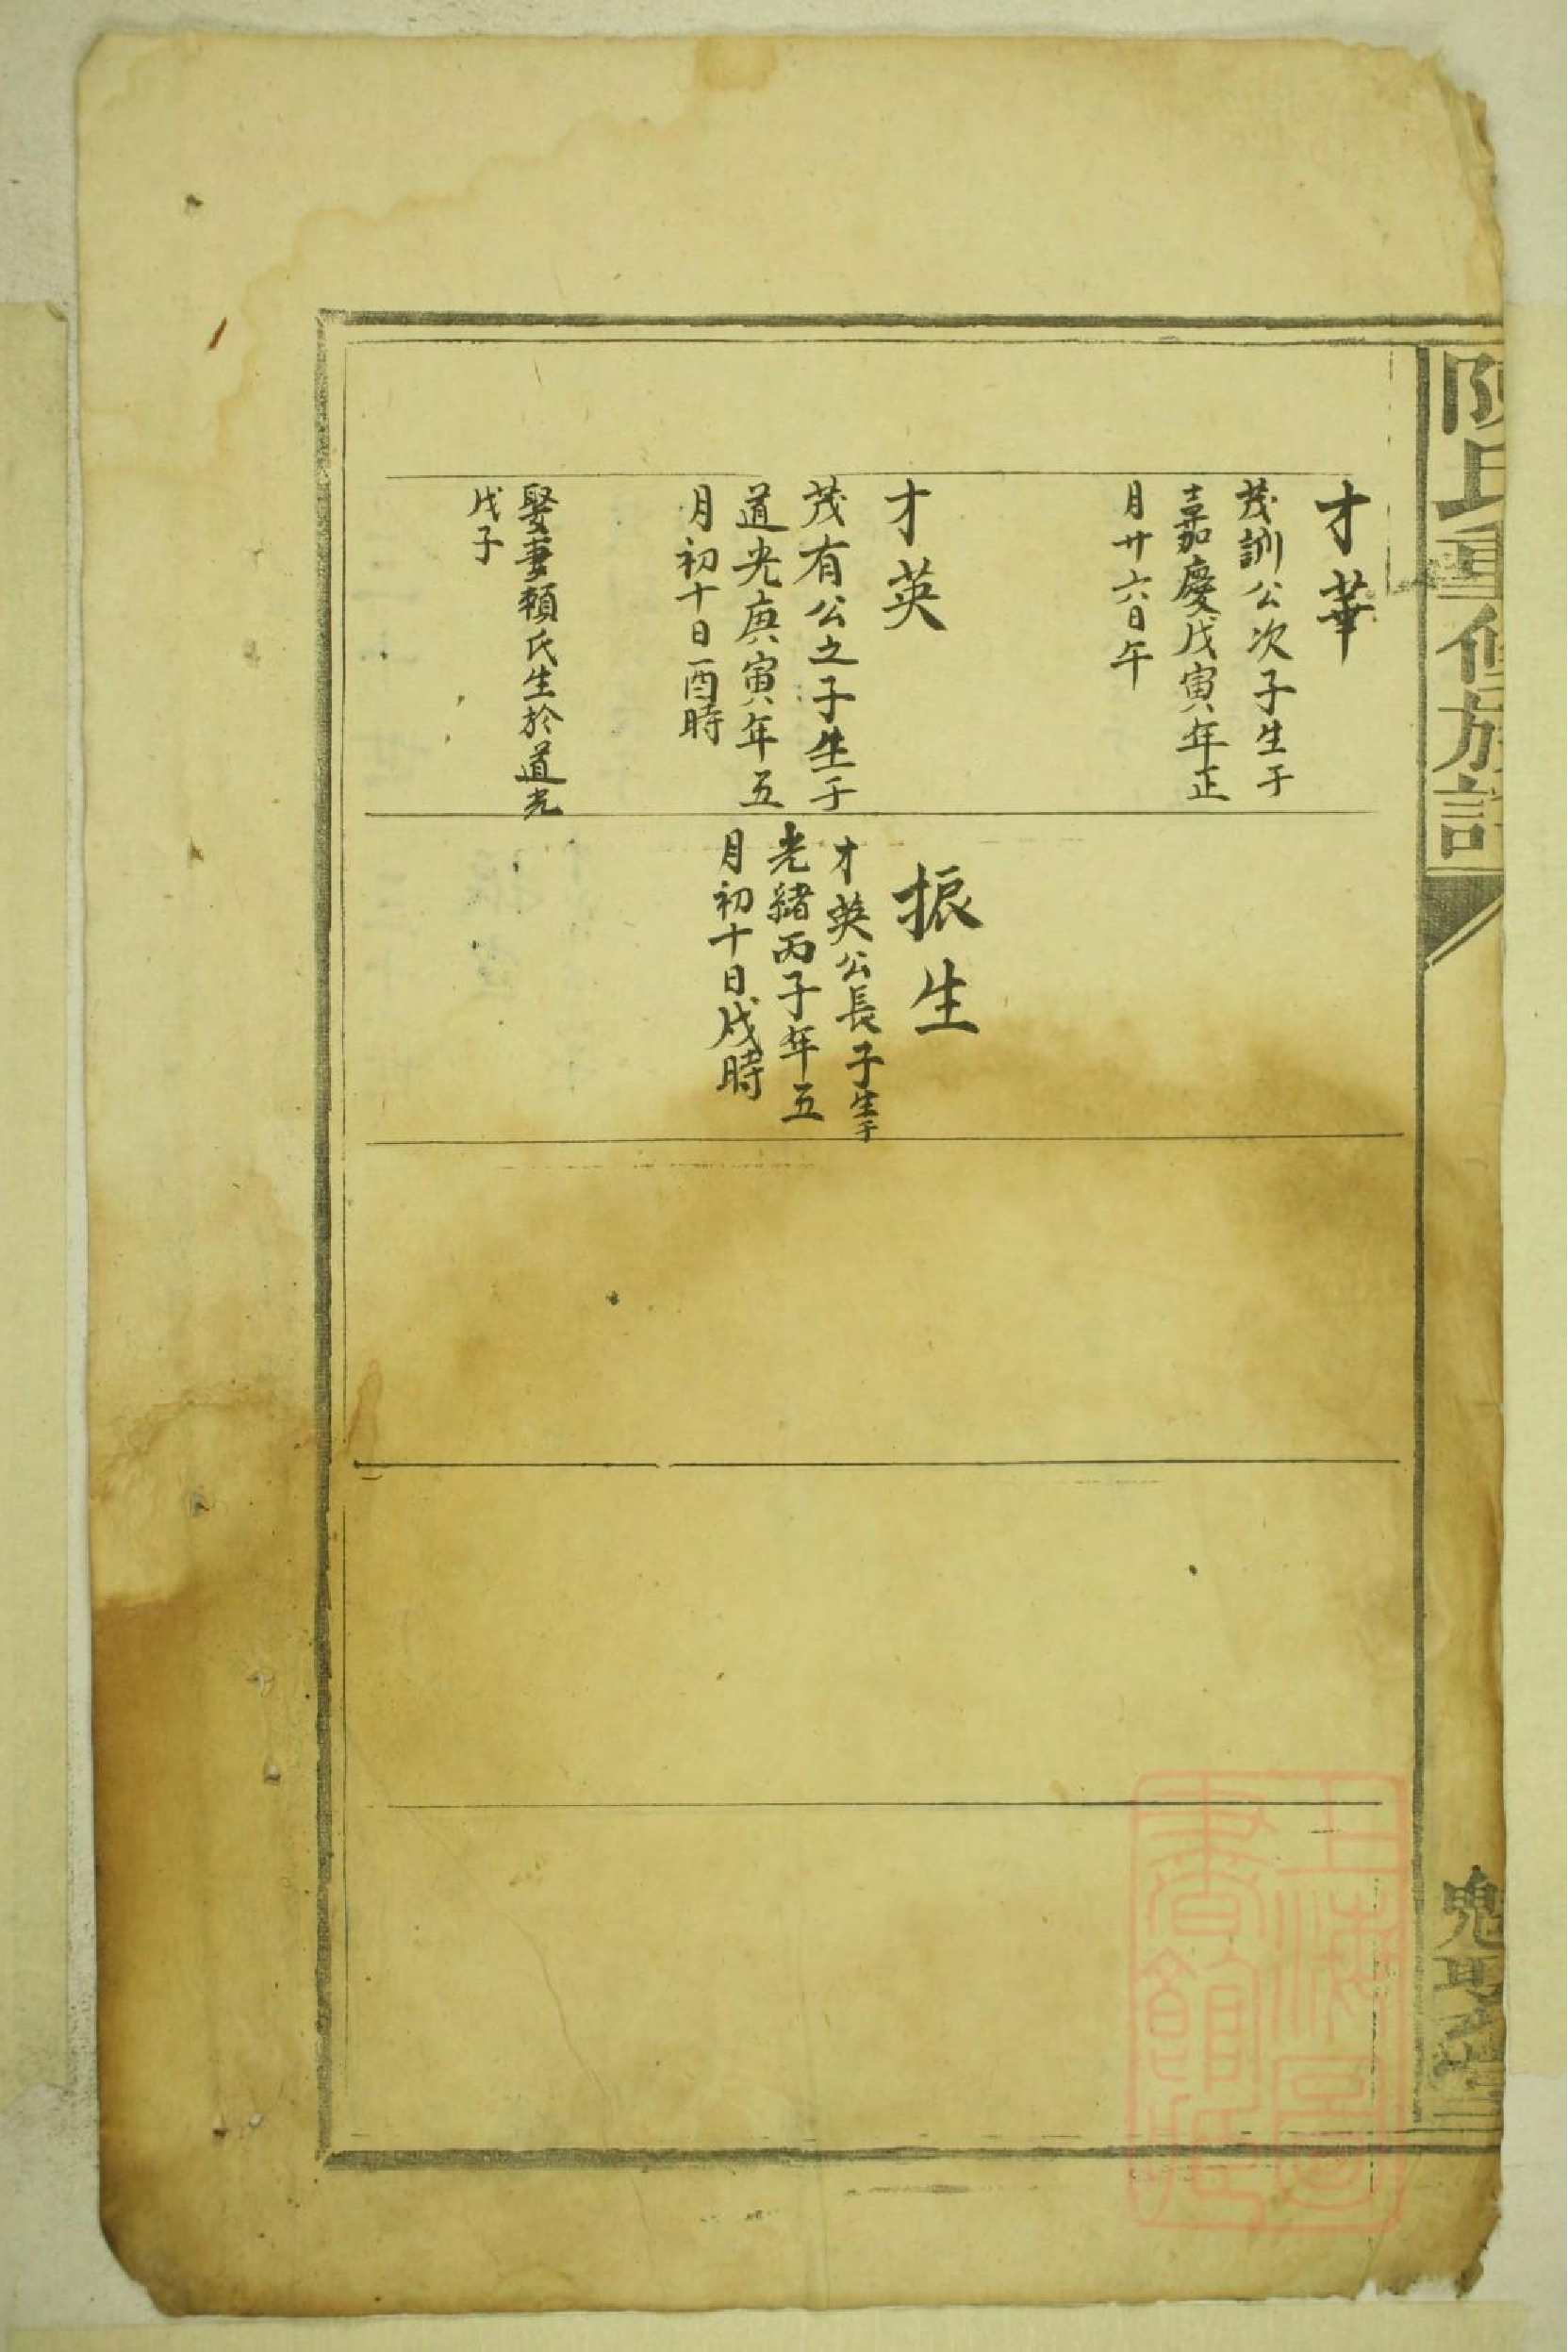 陳氏重修族譜
才華
茂訓公次子生于
嘉慶戊寅年正
月廿六日午
才英
茂有公之子生于
道光庚寅年五
月初十日酉時
娶妻賴氏生於道光
戊子
振生
才英公長子生于
光緒丙子年五
月初十日戌時
上海圖
書館藏